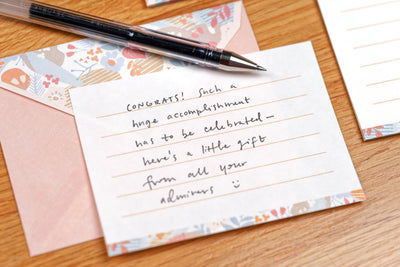 CONGRATS! Such a
huge accomplishment
has to be celebrated—
here's a little gift
from all your
admirers :)